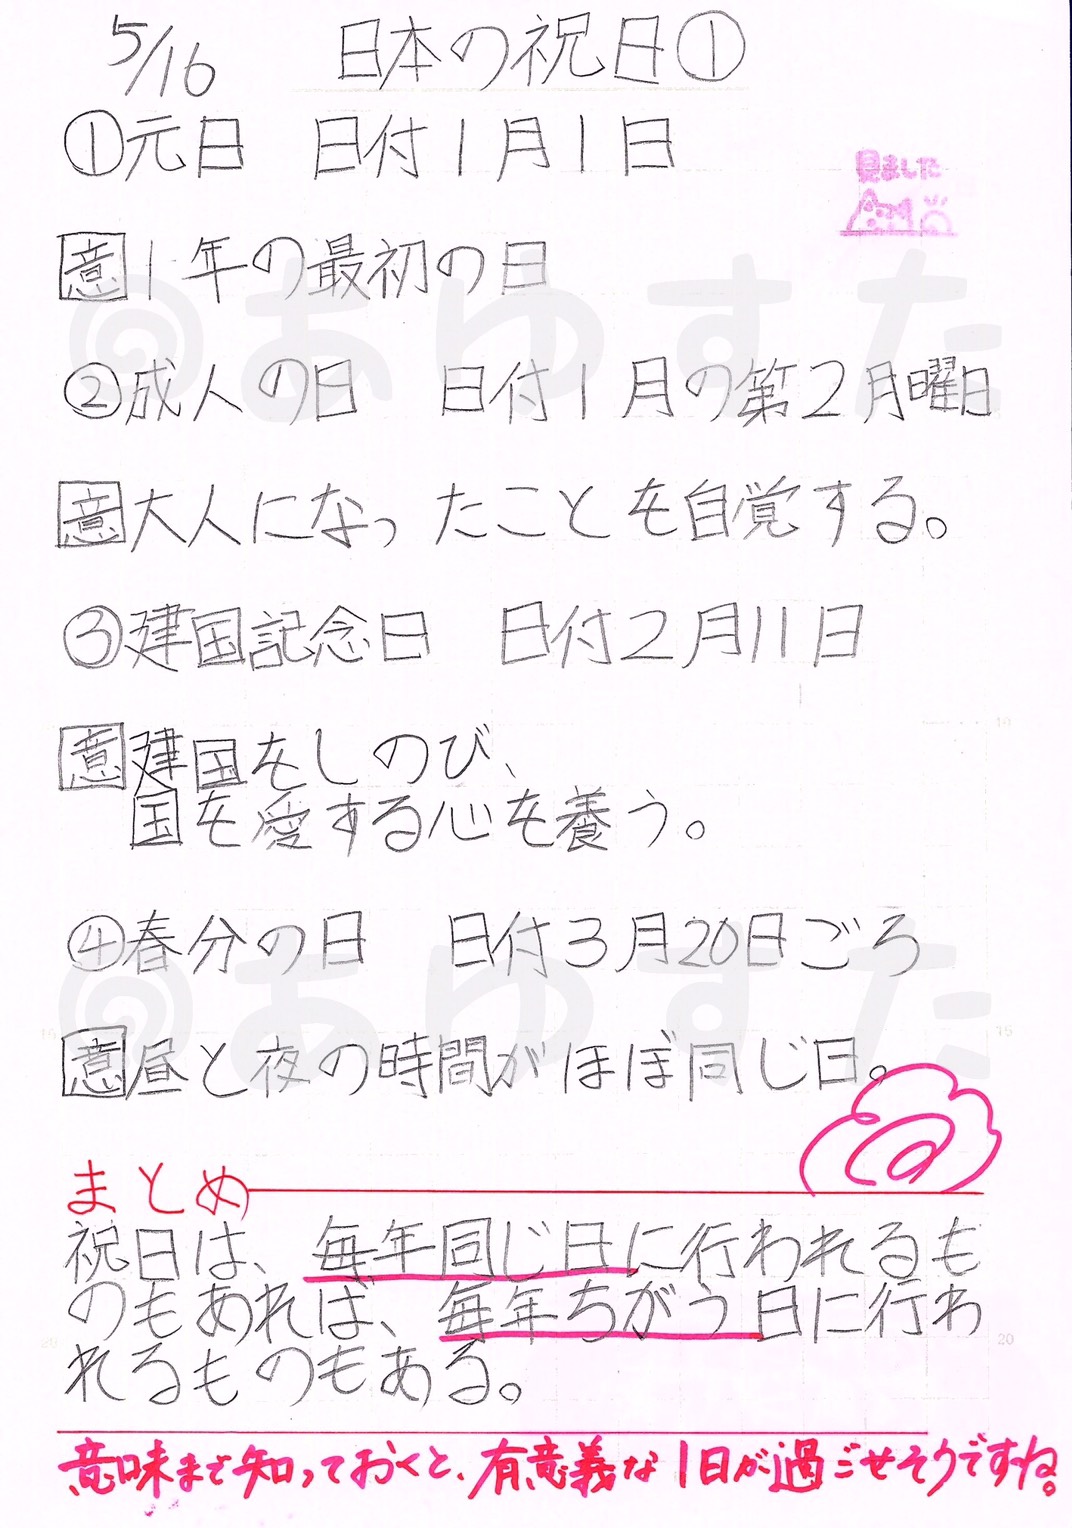 5/16 日本の祝日①
①元日 日付1月1日
見ました
意1年の最初の日
@あゆすた
②成人の日 日付1月の第2月曜日
意大人になったことを自覚する。
③建国記念日 日付2月11日
意建国をしのび、
国を愛する心を養う。
④春分の日 日付3月20日ごろ
@あゆすた
意昼と夜の時間がほぼ同じ日。
まとめ
祝日は、毎年同じ日に行われるも
のもあれば、毎年ちがう日に行わ
れるものもある。
意味まで知っておくと、有意義な1日が過ごせそうですね。